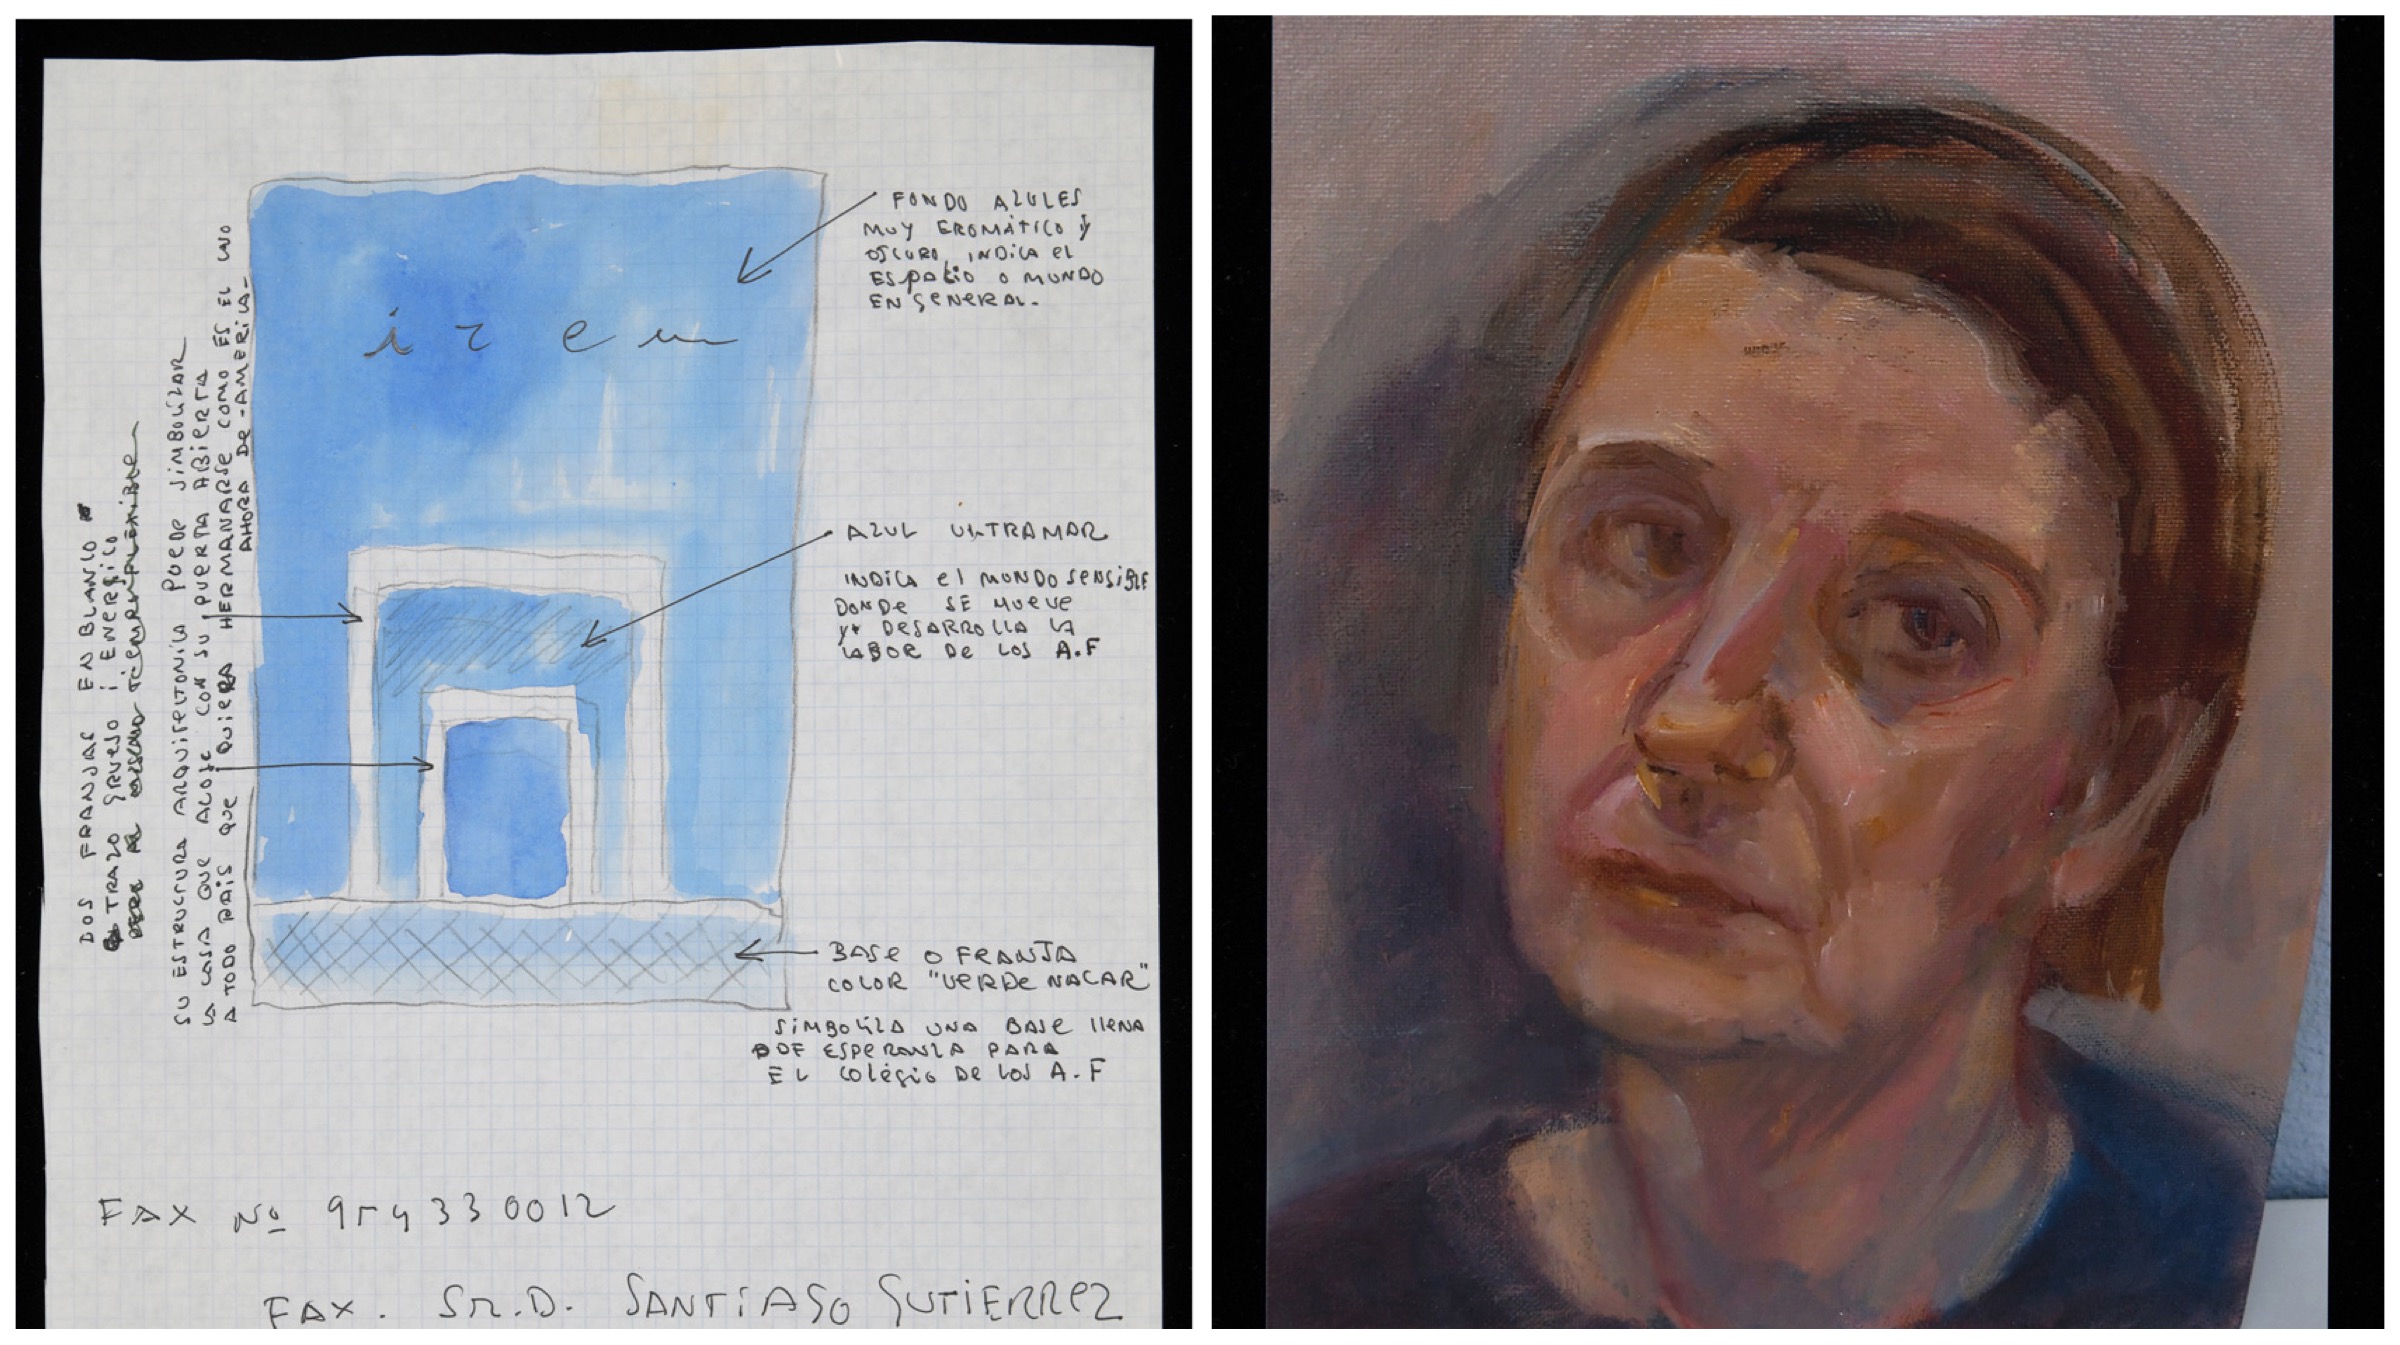 FONDO AZULES
MUY CROMÁTICO Y
OSCURO, INDICA el
ESPACIO O MUNDO
EN GENERAL.
AZUL ULTRAMAR
INDICA el MUNDO SENSIBLE
DONDE SE MUEVE
Y DESARROLLA LA
LABOR DE LOS A.F
BASE O FRANJA
COLOR "VERDE NACAR"
SIMBOLIZA UNA BASE LLENA
DE ESPERANZA PARA
EL COLÉGIO DE LOS A.F
DOS FRANJAS EN BLANCO
TRAZO GRUESO i ENERGICO
SU ESTRUCTURA ARQUITETONICA PUEDE SIMBOLIZAR
LA CASA QUE ALOJE CON SU PUERTA ABIERTA
A TODO PAIS QUE QUIERA HERMANARSE COMO ES EL UNO
AHORA DE-AMERICA-
FAX Nº 954330012
FAX. SR.D. SANTIAGO GUTIERREZ